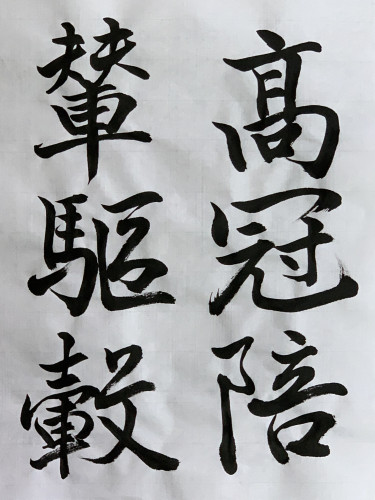 高冠陪
輦驅轂